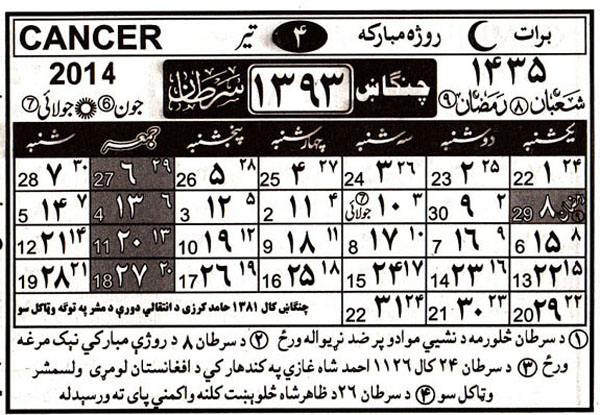 برات روژه مبارکه ۴ تیر CANCER
۱۴۳۵ چنګاښ ۱۳۹۳ سرطان 2014
شعبان ۸ رمضان ۹ جون ⑥ جولائی ⑦
یکشنبه دوشنبه سه شنبه چهارشنبه پنجشنبه جمعه شنبه
۲۴ ۱ 22 ۲۵ ۲ 23 ۲۶ ۳ 24 ۲۷ ۴ 25 ۲۸ ۵ 26 ۲۹ ۶ 27 ۳۰ ۷ 28
۸ 29 ۲ ۹ 30 ۳ ۱۰ ⑦ جولائی ۴ ۱۱ 2 ۵ ۱۲ 3 ۶ ۱۳ 4 ۷ ۱۴ 5
۸ ۱۵ 6 ۹ ۱۶ 7 ۱۰ ۱۷ 8 ۱۱ ۱۸ 9 ۱۲ ۱۹ 10 ۱۳ ۲۰ 11 ۱۴ ۲۱ 12
۱۵ ۲۲ 13 ۱۶ ۲۳ 14 ۱۷ ۲۴ 15 ۱۸ ۲۵ 16 ۱۹ ۲۶ 17 ۲۰ ۲۷ 18 ۲۱ ۲۸ 19
۲۲ ۲۹ 20 ۲۳ ۳۰ 21 ۲۴ ۳۱ 22 چنګاښ کال ۱۳۸۱ حامد کرزی د انتقالي دورې د مشر په توګه وټاکل سو
① د سرطان څلورمه د نشیي موادو پر ضد نړیواله ورځ ② د سرطان ۸ د روژې مبارکي نېک مرغه
ورځ ③ د سرطان ۲۴ کال ۱۱۲۶ احمد شاه غازي په کندهار کي د افغانستان لومړی ولسمشر
وټاکل سو ④ د سرطان ۲۶ د ظاهرشاه څلوېښت کلنه واکمني پای ته ورسېدله